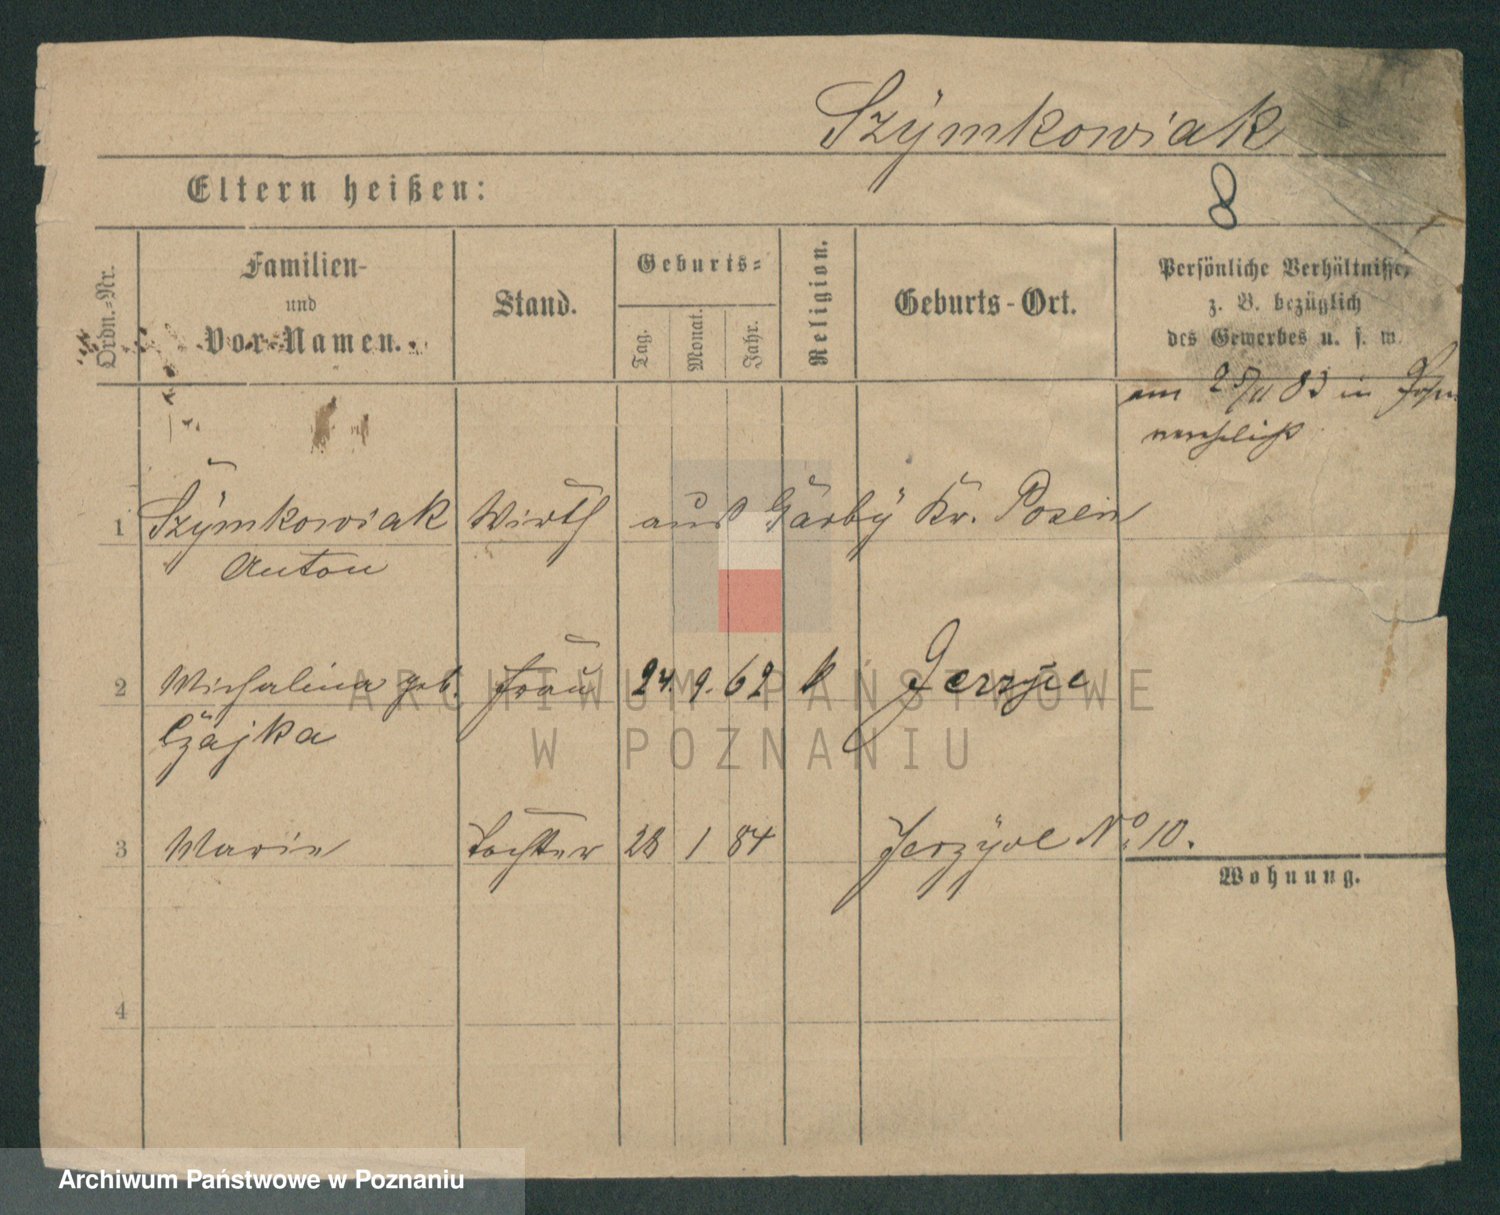 Szymkowiak
Eltern heißen:
8
Ordn.-Nr.
Familien-
und
Vor-Namen.
Stand.
Geburts-
Tag.
Monat.
Jahr.
Religion.
Geburts-Ort.
Persönliche Verhältnisse,
z. B. bezüglich
des Gewerbes u. s. w.
am 25/11 83 in Posen
verehelicht
1 Szymkowiak Wirth aus Garby Kr. Posen
Anton
2 Michalina geb. Frau 24. 9. 62 k Jerzyce
Czajka
3 Marie Tochter 28 1 84 Jerzyce No. 10.
Wohnung.
4
ARCHIWUM PAŃSTWOWE
W POZNANIU
Archiwum Państwowe w Poznaniu